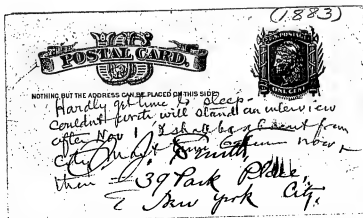 (1883)
POSTAL CARD.
U.S. POSTAGE
ONE CENT
NOTHING BUT THE ADDRESS CAN BE PLACED ON THIS SIDE
Hardly get time to sleep-
Couldnt write will stand an interview
after Nov 1 I shall be absent from
City now &
then
J. Smith,
39 Park Place,
New York City.